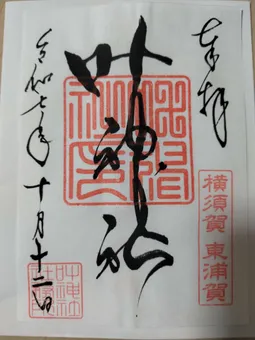 奉拝
横須賀 東浦賀
叶神社
令和七年十月十二日
叶神社